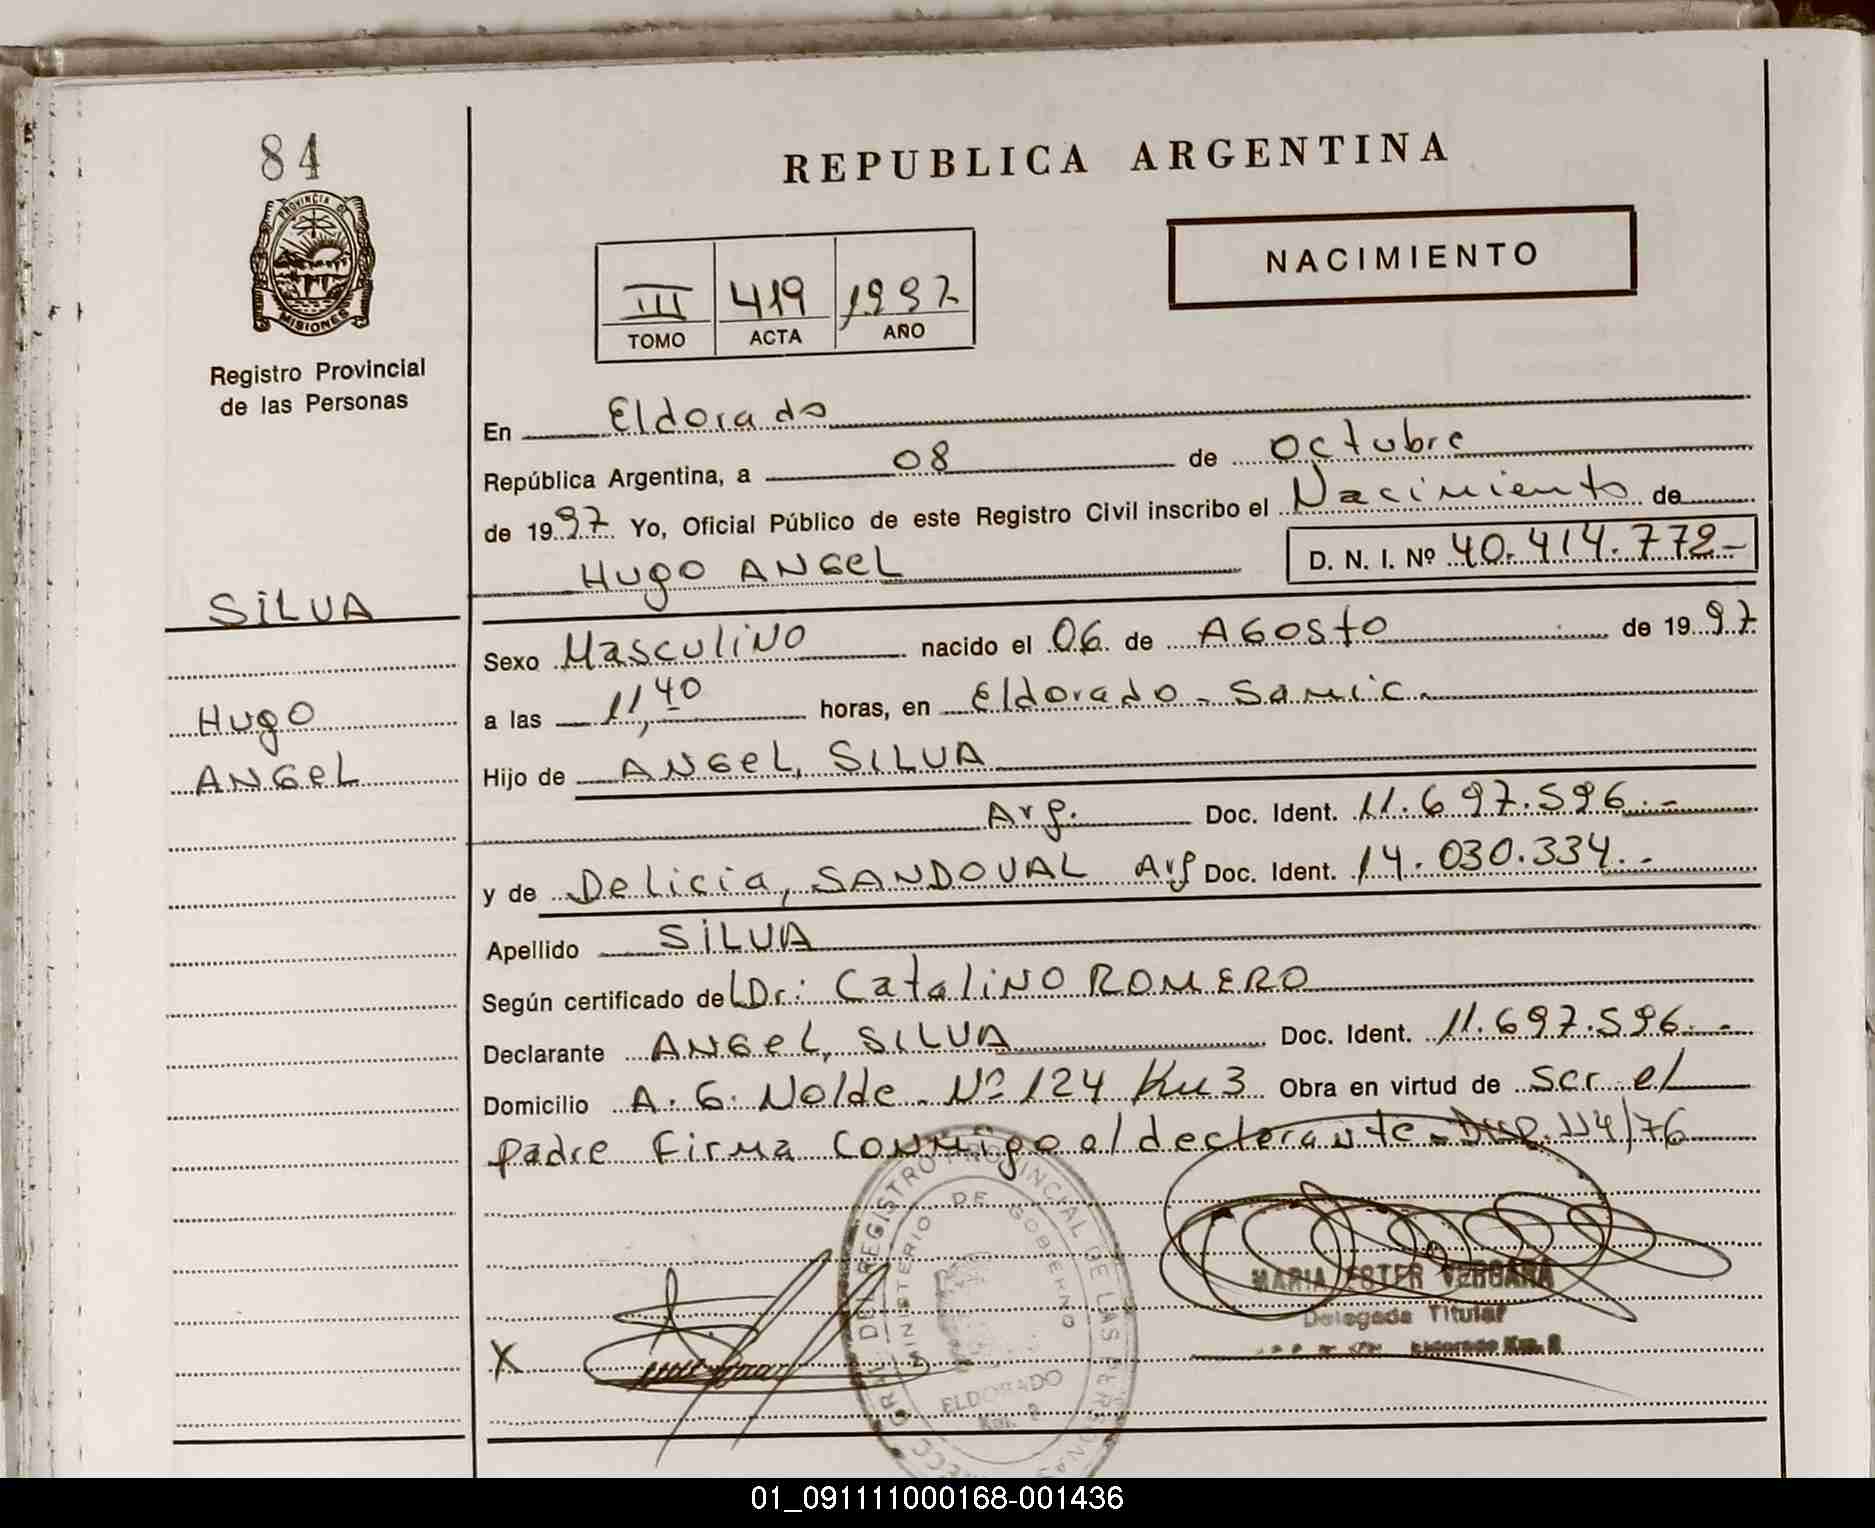 84
PROVINCIA DE
MISIONES
Registro Provincial
de las Personas
REPUBLICA ARGENTINA
NACIMIENTO
III 419 1997
TOMO ACTA AÑO
En Eldorado
República Argentina, a 08 de octubre
de 1997 Yo, Oficial Público de este Registro Civil inscribo el Nacimiento de
HUgO ANGeL D. N. I. Nº 40.414.772-
SiLVA
HUgO
ANGeL
Sexo MasculiNO nacido el 06 de AGOSto de 1997
a las 11,40 horas, en eldorado - Samic.
Hijo de ANGeL, SILVA
Arg. Doc. Ident. 11.697.596.-
y de Delicia, SANDOVAL Arg Doc. Ident. 14.030.334.-
Apellido SiLVA
Según certificado del Dr: CataliNO ROMERO
Declarante ANGeL, SILVA Doc. Ident. 11.697.596.-
Domicilio A. G. Nolde. Nº 124 Km 3 Obra en virtud de ser el
padre Firma conmigo el declarante - Disp. 114/76
X
REGISTRO PROVINCIAL DE LAS PERSONAS
MINISTERIO DE GOBIERNO
ELDORADO
MARIA ESTER VERGARA
Delegada Titular
Eldorado Km.
01_091111000168-001436